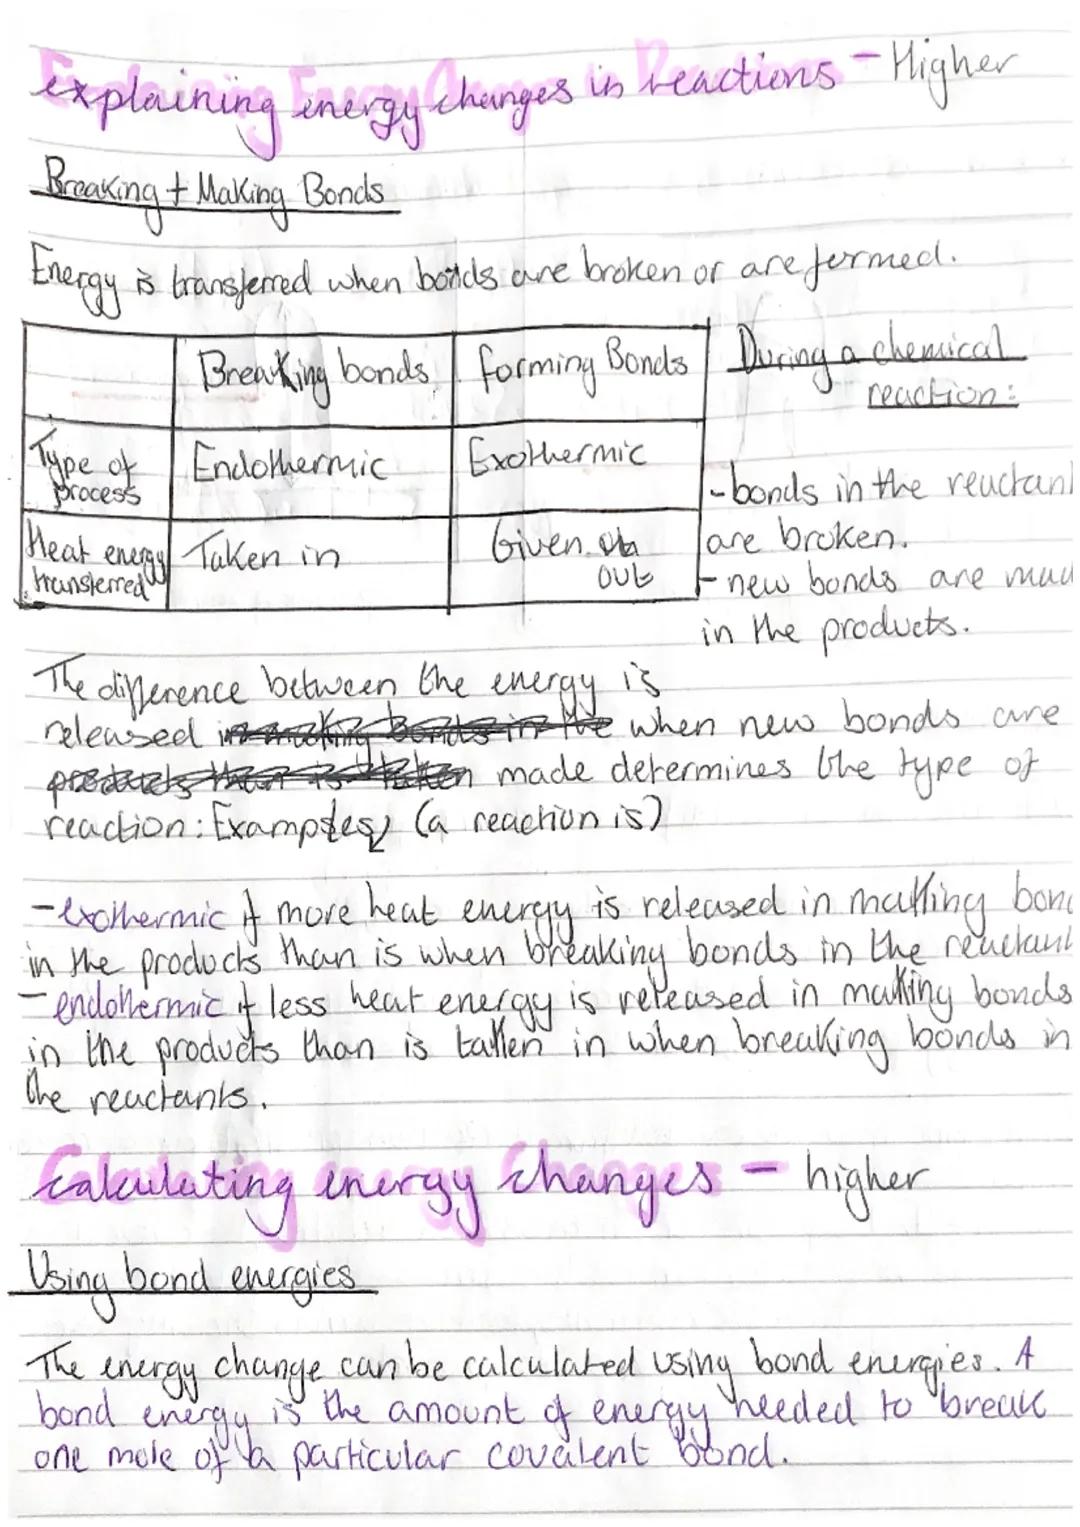 explaining energy changes in reactions - Higher
Breaking + Making Bonds
Energy is transferred when bonds are broken or are formed.
Breaking bonds
forming Bonds
Type of process
Endothermic
Exothermic
Heat energy transferred
Taken in
Given out
During a chemical
reaction:
- bonds in the reactant
are broken.
- new bonds are mad
in the products.
The difference between the energy is
released when new bonds are
made determines the type of
reaction: Examples (a reaction is)
- exothermic if more heat energy is released in making bond
in the products than is when breaking bonds in the reactant
- endothermic if less heat energy is released in making bonds
in the products than is taken in when breaking bonds in
the reactants.
Calculating energy changes - higher
Using bond energies
The energy change can be calculated using bond energies. A
bond energy is the amount of energy needed to break
one mole of a particular covalent bond.